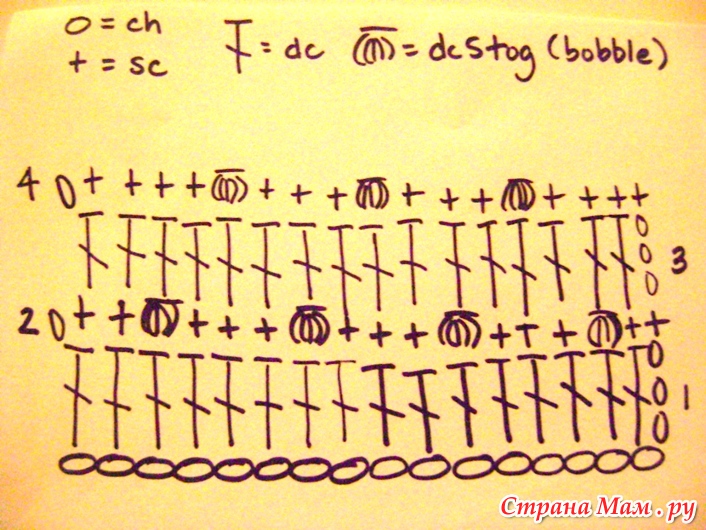 O = ch
+ = sc
= dc
= dc5tog (bobble)
4
3
2
1
Страна Мам . ру